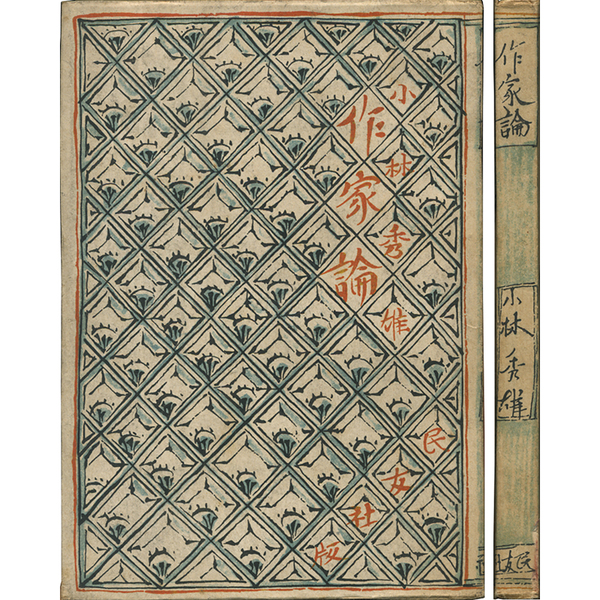 小林秀雄
作家論
民友社版
作家論
小林秀雄
民友社